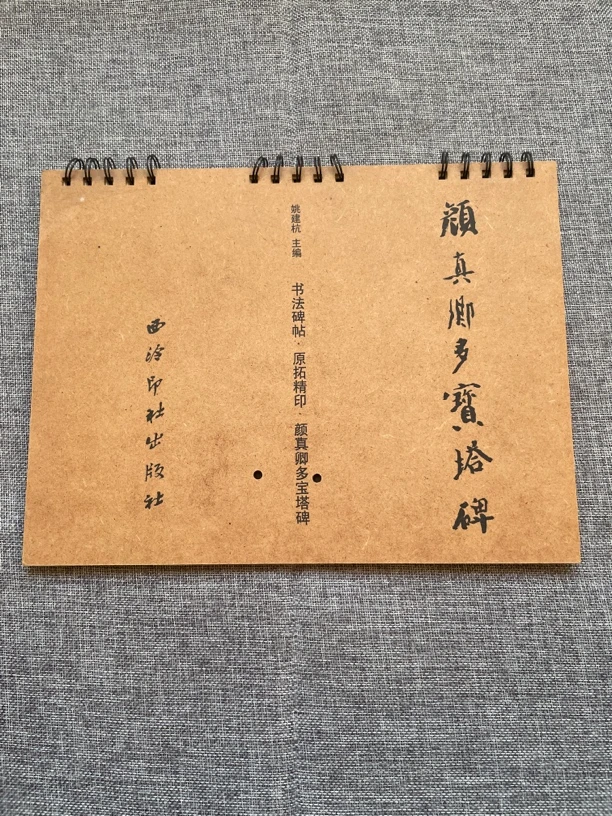 顔真卿多寶塔碑
姚建杭 主编
书法碑帖·原拓精印·颜真卿多宝塔碑
西泠印社出版社